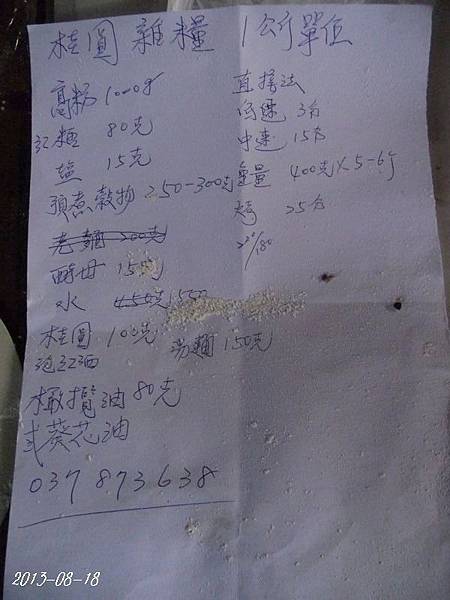 桂圓 雜糧 1公斤單位
高粉 1000g
紅糖 80克
塩 15克
預煮穀物 250-300克
老麵 200克
酵母 15克
水 450克 550
桂圓 100克
泡紅酒
湯麵 150克
橄欖油 80克
或葵花油
037 873638
直接法
低速 3分
中速 15分
重量 400克 X 5-6
烤 25分
220/180
2013-08-18